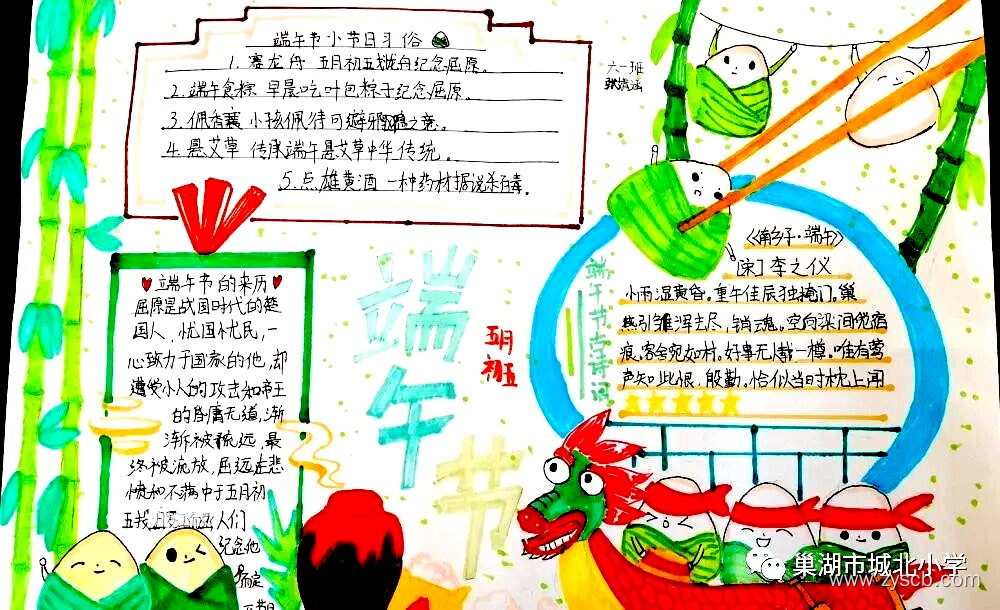 端午节小节日习俗
1. 赛龙舟 五月初五划龙舟纪念屈原。
2. 端午食粽 早晨吃叶包粽子纪念屈原。
3. 佩香囊 小孩佩待可避邪驱瘟之意。
4. 悬艾草 传承端午悬艾草中华传统。
5. 点雄黄酒 一种药材据说杀百毒。
六一班
端午节的来历
屈原是战国时代的楚
国人，忧国忧民，一
心致力于国家的他，却
遭受小人的攻击和帝王
的昏庸无道，渐
渐被疏远，最
终被流放，屈远在悲
愤和不满中于五月初
五投
人们
纪念他
端午节
五月
初五
端午节古诗词
《南乡子·端午》
[宋] 李之仪
小雨湿黄昏。重午佳辰独掩门。巢
燕引雏浑去尽，销魂。空向梁间觅宿
痕。客舍宛如村。好事无人载一樽。唯有莺
声知此恨，殷勤。恰似当时枕上闻
巢湖市城北小学
www.zyscb.com